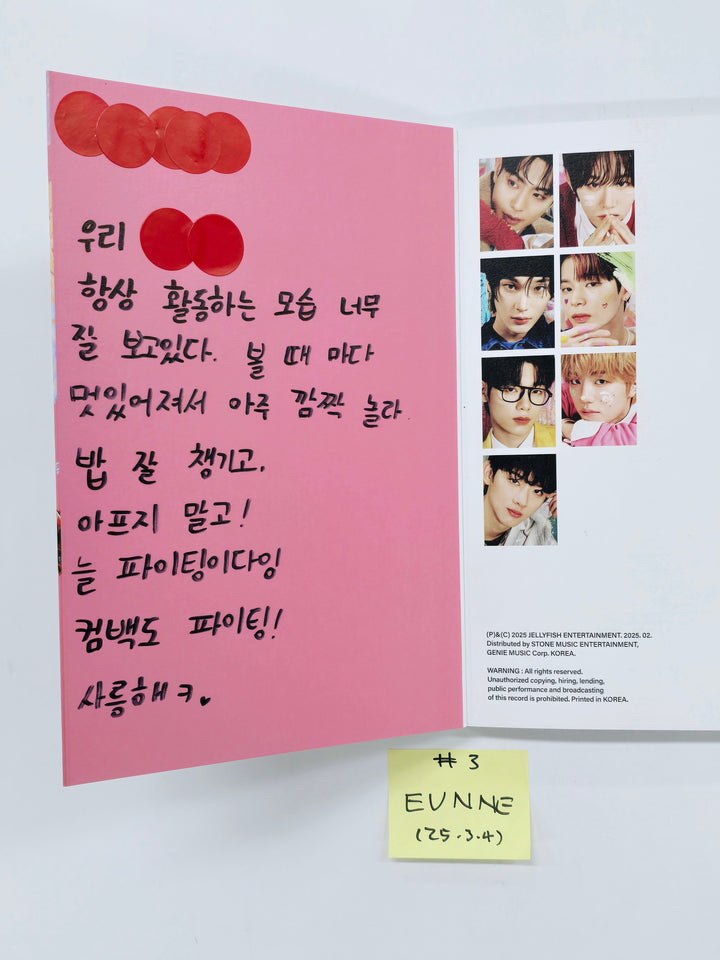 우리
항상 활동하는 모습 너무
잘 보고있다. 볼 때 마다
멋있어져서 아주 깜짝 놀라
밥 잘 챙기고,
아프지 말고!
늘 파이팅이다잉
컴백도 파이팅!
사릉해 ㅋ
(P)&(C) 2025 JELLYFISH ENTERTAINMENT. 2025. 02.
Distributed by STONE MUSIC ENTERTAINMENT,
GENIE MUSIC Corp. KOREA.
WARNING : All rights reserved.
Unauthorized copying, hiring, lending,
public performance and broadcasting
of this record is prohibited. Printed in KOREA.
# 3
EUNNE
(25.3.4)